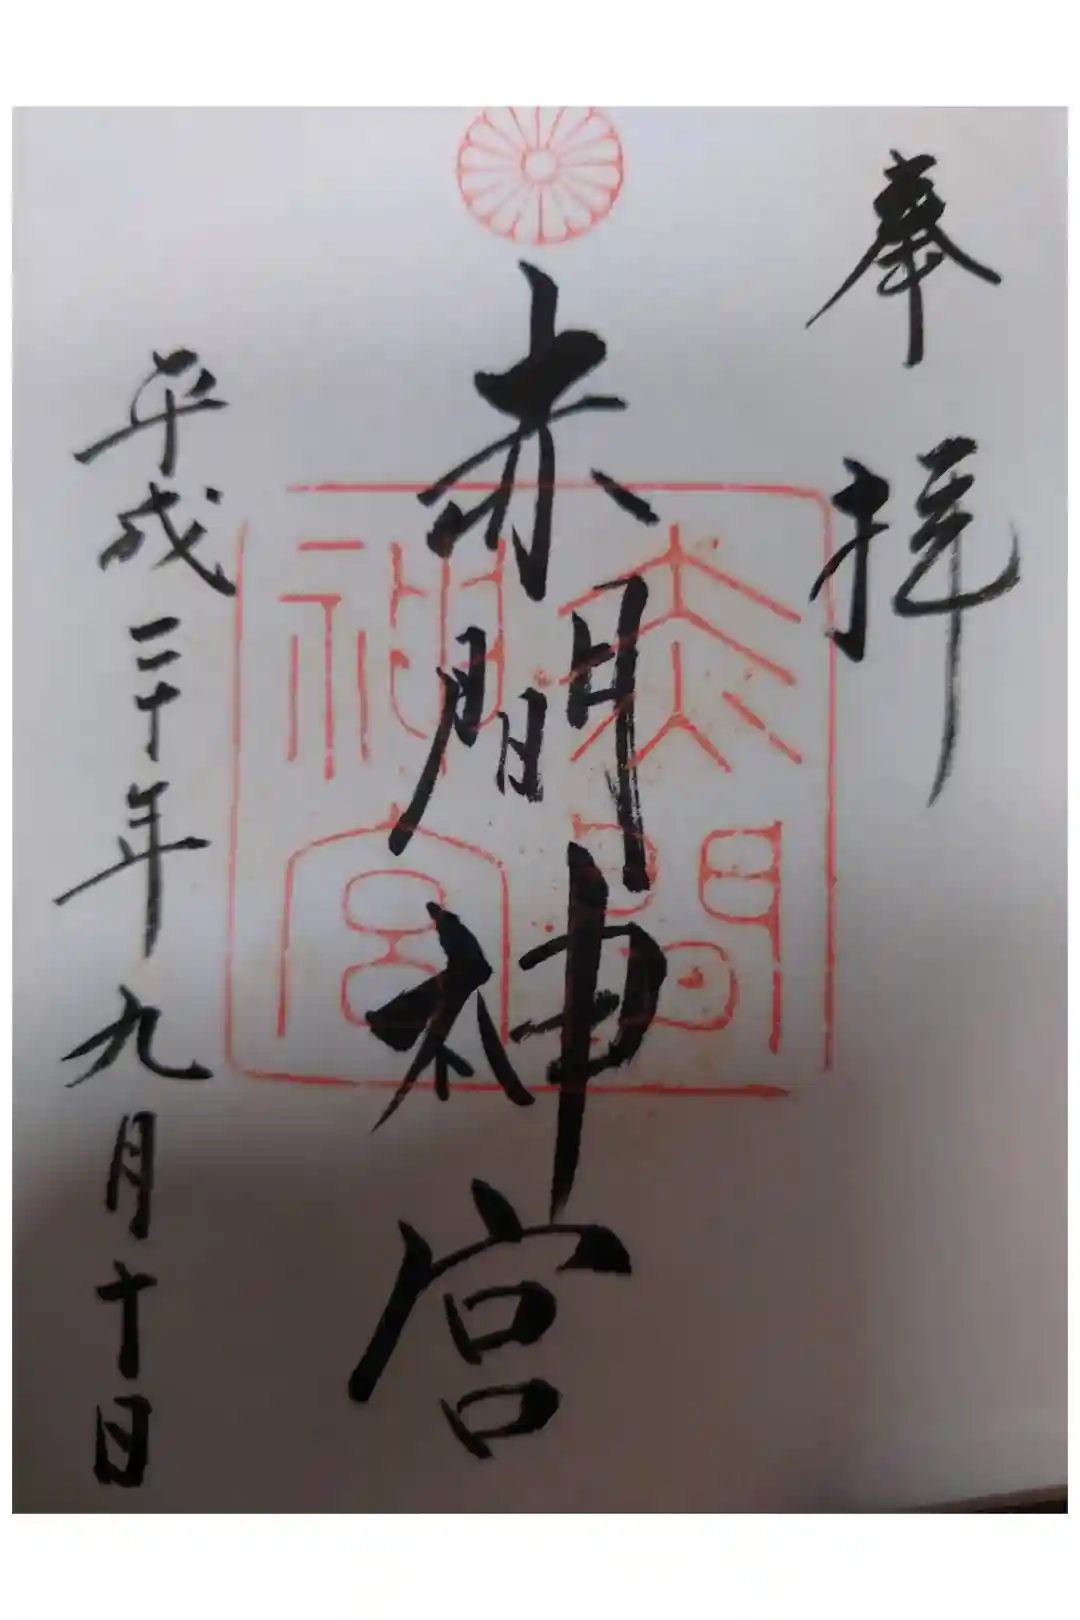 奉拝
赤間神宮
平成二十年九月十日
赤間
神宮